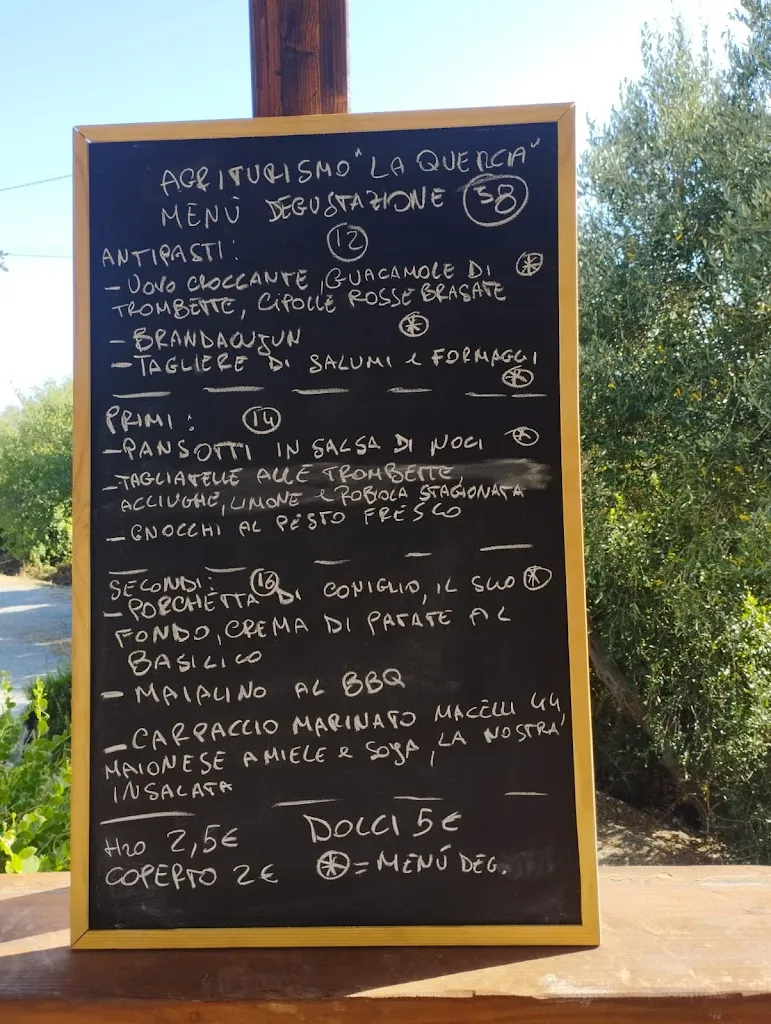 AGRITURISMO "LA QUERCIA"
MENÙ DEGUSTAZIONE 38
ANTIPASTI: 12
- UOVO CROCCANTE, GUACAMOLE DI
TROMBETTE, CIPOLLE ROSSE BRASATE
- BRANDACUJUN
- TAGLIERE DI SALUMI e FORMAGGI
PRIMI: 14
- PANSOTTI IN SALSA DI NOCI
- TAGLIATELLE ALLE TROMBETTE,
ACCIUGHE, LIMONE e ROBIOLA STAGIONATA
- GNOCCHI AL PESTO FRESCO
SECONDI: 16
- PORCHETTA DI CONIGLIO, IL SUO
FONDO, CREMA DI PATATE AL
BASILICO
- MAIALINO AL BBQ
- CARPACCIO MARINATO MACELLI 44,
MAIONESE A MIELE e SOYA, LA NOSTRA
INSALATA
H2O 2,5€ DOLCI 5€
COPERTO 2€ = MENÚ DEG.